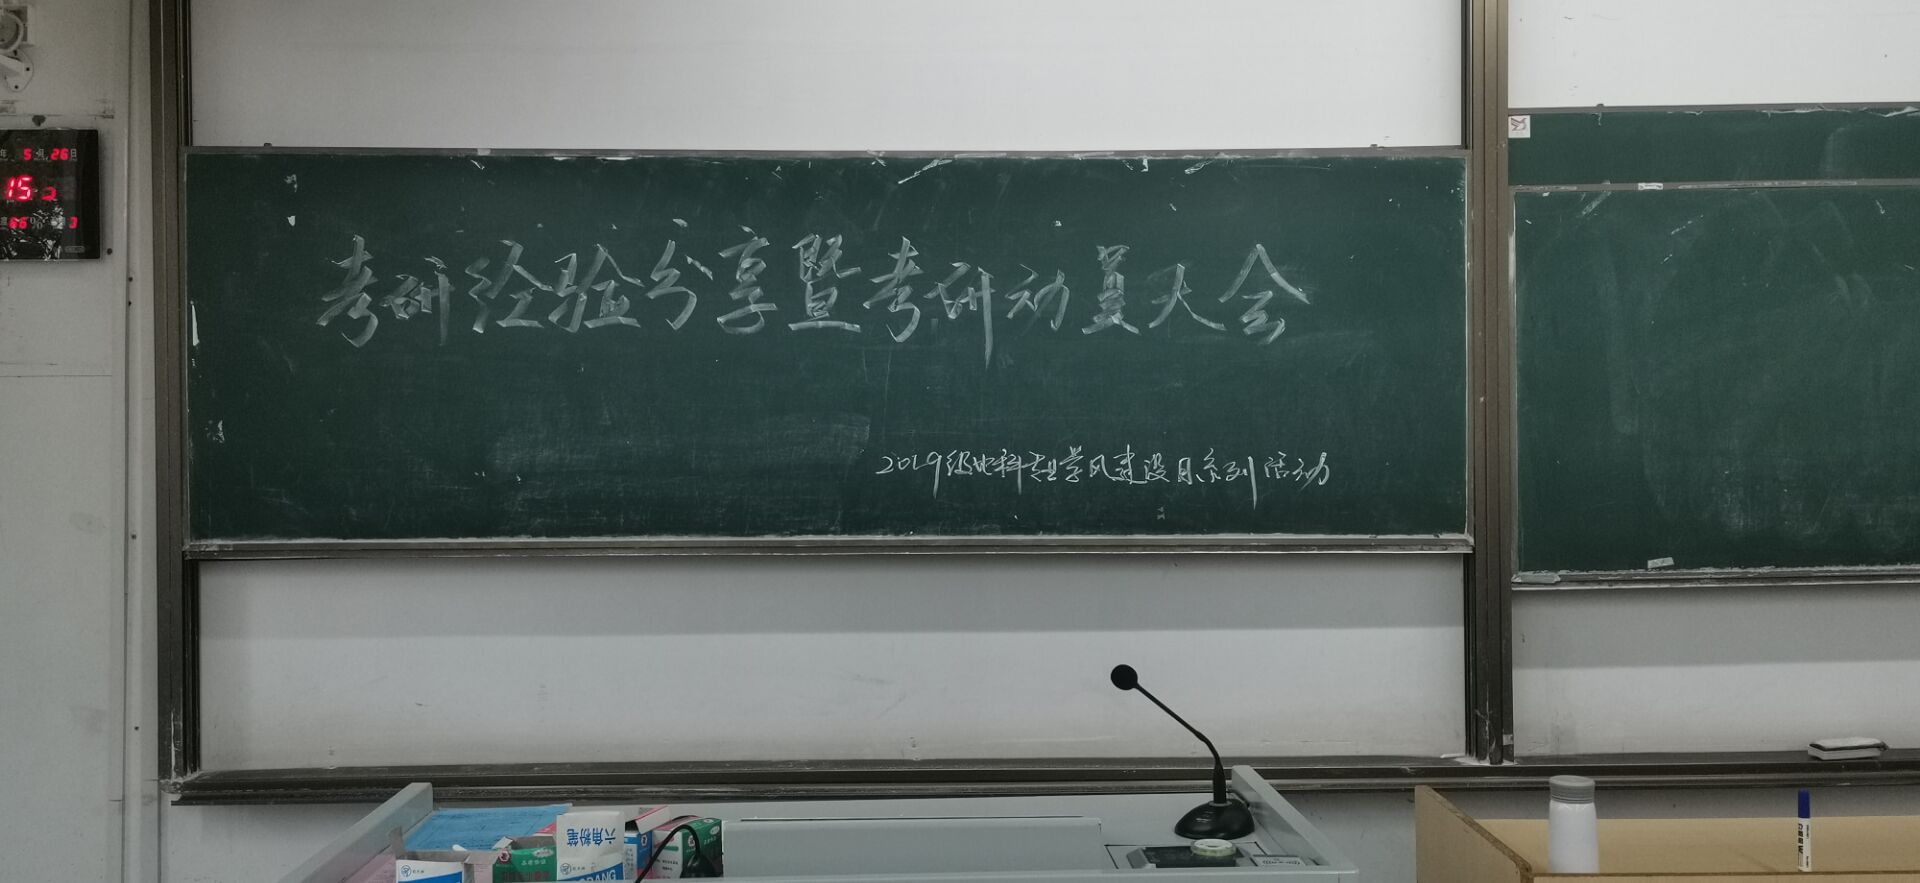 考研经验分享暨考研动员大会
2019级地科专业学风建设月系列活动
年 5月26日
15
66%
六角粉笔